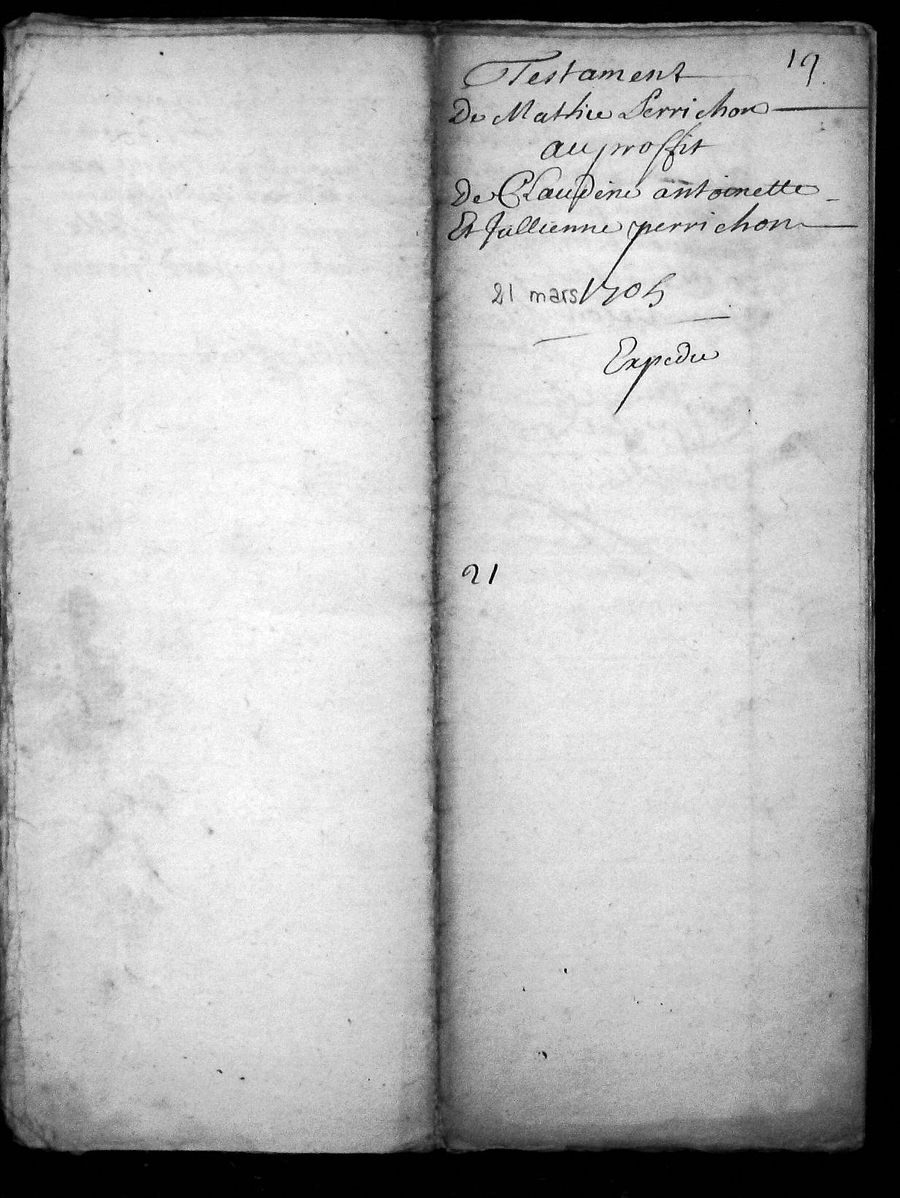 19.
Testament
De Mathie Perrichon
au proffit
De Claudine antoinette
Et Jullienne perrichon
21 mars 1705
Expedie
21